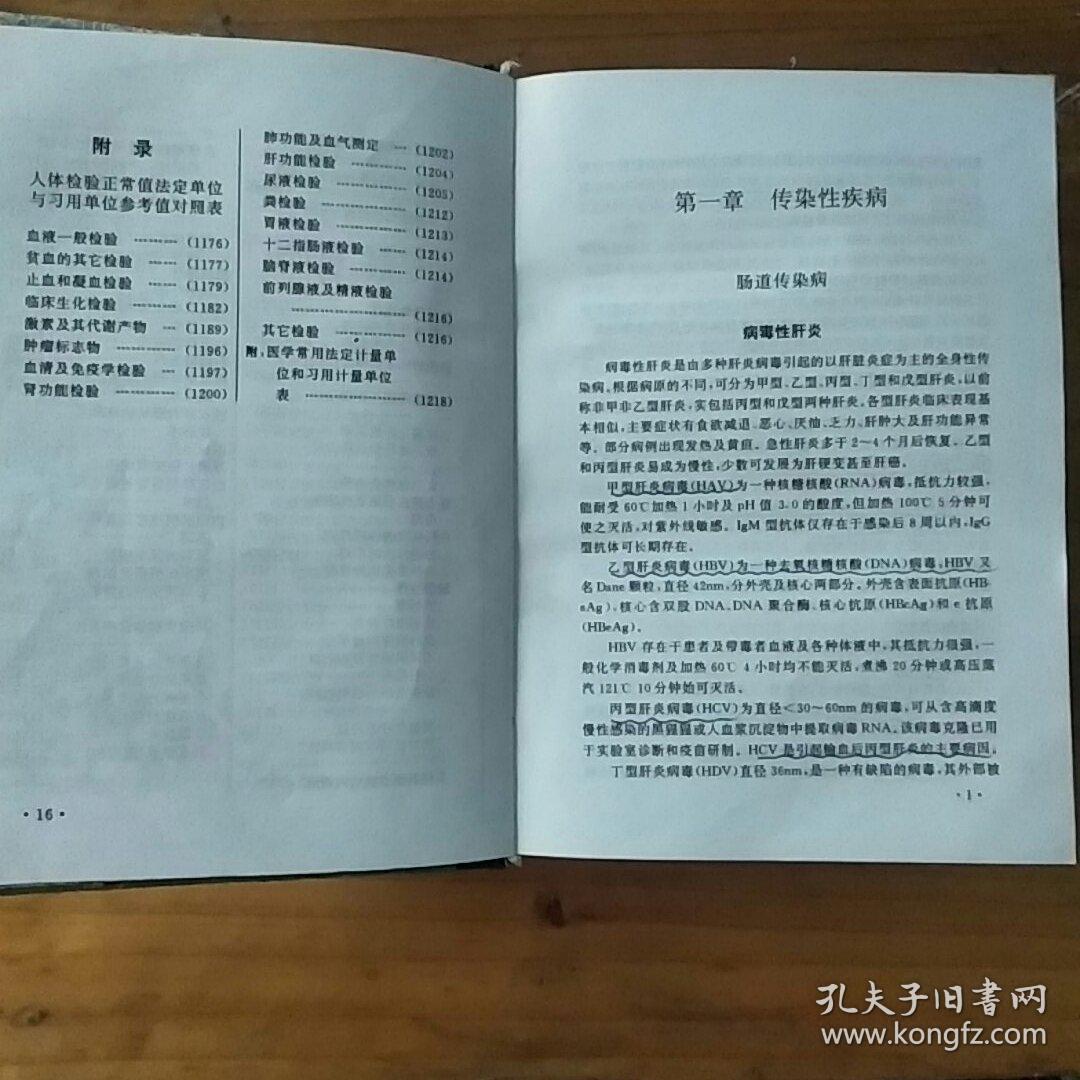 附 录
人体检验正常值法定单位
与习用单位参考值对照表
血液一般检验 ……… (1176)
贫血的其它检验 …… (1177)
止血和凝血检验 …… (1179)
临床生化检验 ……… (1182)
激素及其代谢产物 … (1189)
肿瘤标志物 ………… (1196)
血清及免疫学检验 … (1197)
肾功能检验 ………… (1200)
肺功能及血气测定 … (1202)
肝功能检验 ………… (1204)
尿液检验 …………… (1205)
粪检验 ……………… (1212)
胃液检验 …………… (1213)
十二指肠液检验 …… (1214)
脑脊液检验 ………… (1214)
前列腺液及精液检验
……………………… (1216)
其它检验 …………… (1216)
附:医学常用法定计量单
位和习用计量单位
表 ………………… (1218)
·16·
第一章 传染性疾病
肠道传染病
病毒性肝炎
病毒性肝炎是由多种肝炎病毒引起的以肝脏炎症为主的全身性传
染病。根据病原的不同,可分为甲型、乙型、丙型、丁型和戊型肝炎,以前
称非甲非乙型肝炎,实包括丙型和戊型两种肝炎。各型肝炎临床表现基
本相似,主要症状有食欲减退、恶心、厌油、乏力、肝肿大及肝功能异常
等。部分病例出现发热及黄疸。急性肝炎多于2~4个月后恢复。乙型
和丙型肝炎易成为慢性,少数可发展为肝硬变甚至肝癌。
甲型肝炎病毒(HAV)为一种核糖核酸(RNA)病毒,抵抗力较强,
能耐受60℃加热1小时及pH值3.0的酸度,但加热100℃5分钟可
使之灭活,对紫外线敏感。IgM型抗体仅存在于感染后8周以内,IgG
型抗体可长期存在。
乙型肝炎病毒(HBV)为一种去氧核糖核酸(DNA)病毒,HBV又
名Dane颗粒,直径42nm,分外壳及核心两部分。外壳含表面抗原(HB-
sAg),核心含双股DNA、DNA聚合酶、核心抗原(HBcAg)和e抗原
(HBeAg)。
HBV存在于患者及带毒者血液及各种体液中,其抵抗力很强,一
般化学消毒剂及加热60℃4小时均不能灭活,煮沸20分钟或高压蒸
汽121℃10分钟始可灭活。
丙型肝炎病毒(HCV)为直径<30~60nm的病毒,可从含高滴度
慢性感染的黑猩猩或人血浆沉淀物中提取病毒RNA。该病毒克隆已用
于实验室诊断和疫苗研制。HCV是引起输血后丙型肝炎的主要病因。
丁型肝炎病毒(HDV)直径36nm,是一种有缺陷的病毒,其外部被
·1·
孔夫子旧书网
www.kongfz.com